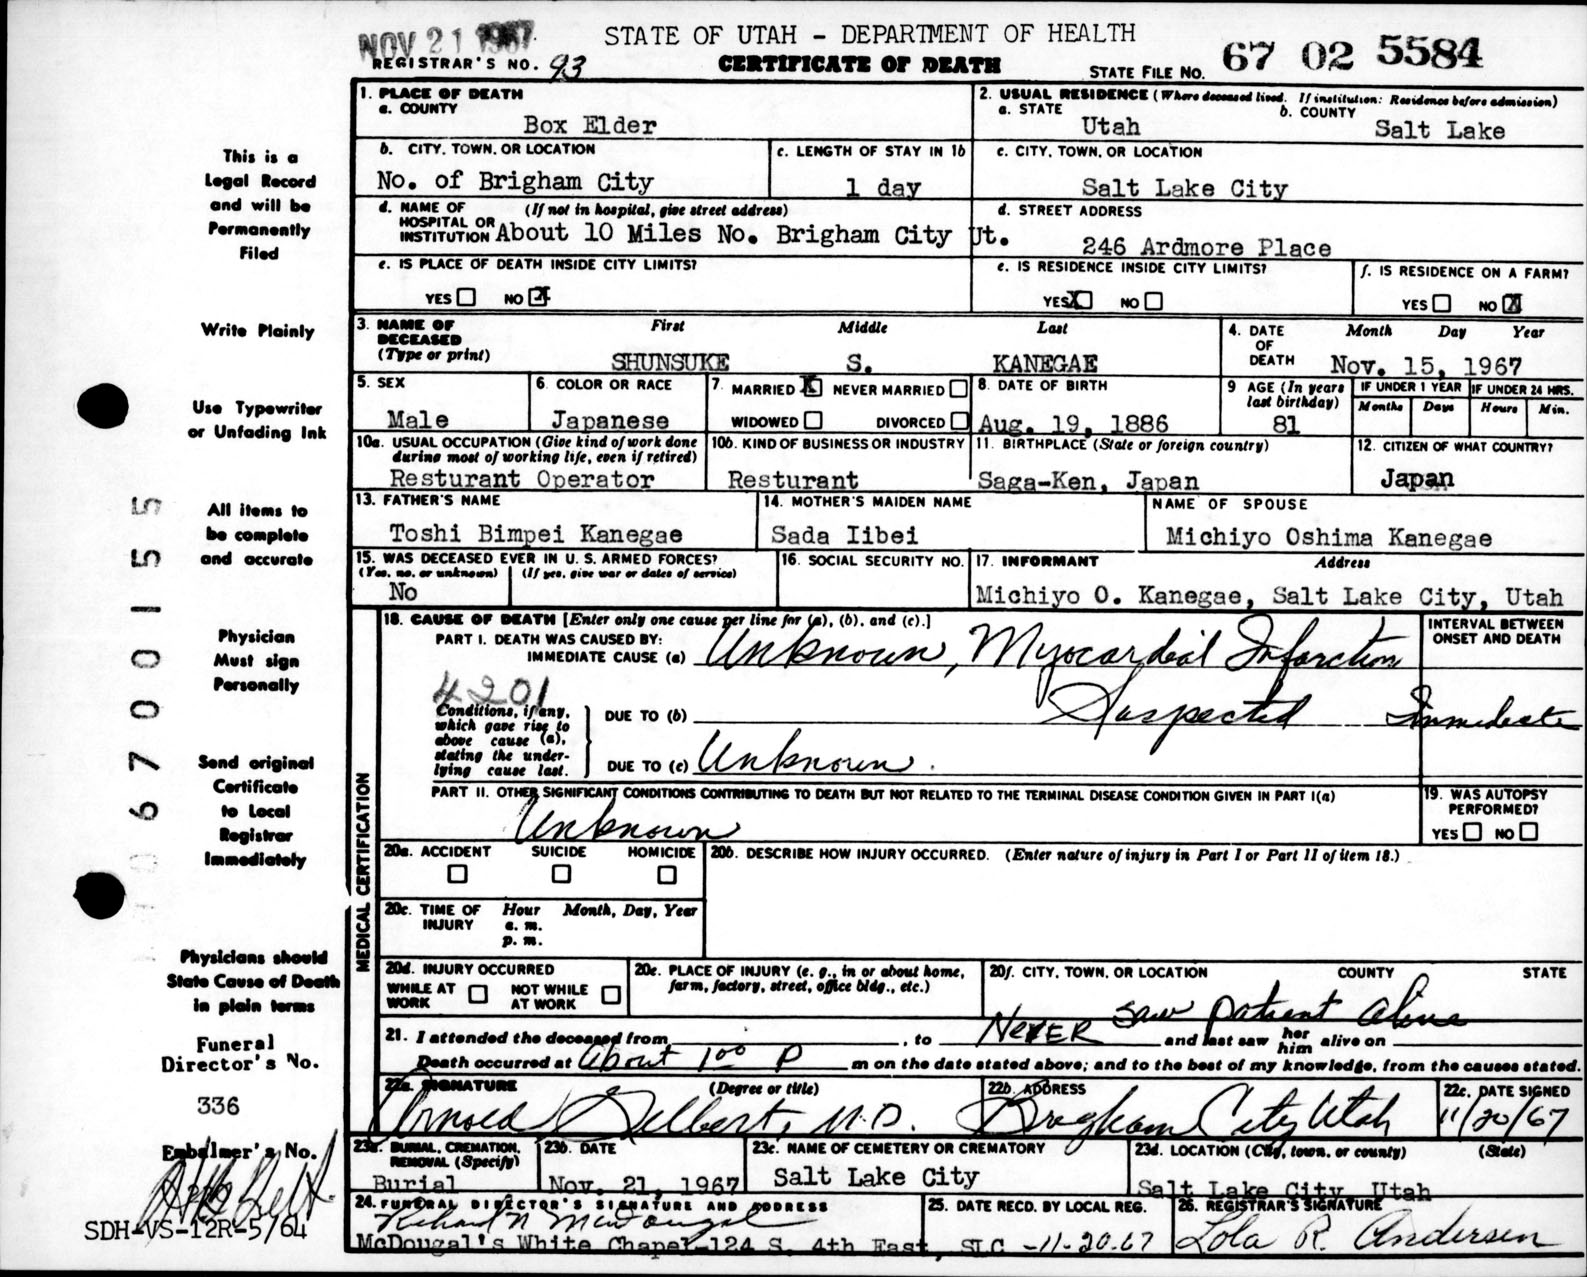 NOV 21 1967
STATE OF UTAH - DEPARTMENT OF HEALTH
REGISTRAR'S NO. 93
CERTIFICATE OF DEATH
STATE FILE NO. 67 02 5584
1. PLACE OF DEATH
a. COUNTY
Box Elder
2. USUAL RESIDENCE (Where deceased lived. If institution: Residence before admission)
a. STATE
Utah
b. COUNTY
Salt Lake
b. CITY, TOWN, OR LOCATION
No. of Brigham City
c. LENGTH OF STAY IN 1b
1 day
c. CITY, TOWN, OR LOCATION
Salt Lake City
d. NAME OF HOSPITAL OR INSTITUTION
(If not in hospital, give street address)
About 10 Miles No. Brigham City Ut.
d. STREET ADDRESS
246 Ardmore Place
e. IS PLACE OF DEATH INSIDE CITY LIMITS?
YES NO X
e. IS RESIDENCE INSIDE CITY LIMITS?
YES X NO
f. IS RESIDENCE ON A FARM?
YES NO X
3. NAME OF DECEASED
(Type or print)
First Middle Last
SHUNSUKE S. KANEGAE
4. DATE OF DEATH
Month Day Year
Nov. 15, 1967
5. SEX
Male
6. COLOR OR RACE
Japanese
7. MARRIED X NEVER MARRIED
WIDOWED DIVORCED
8. DATE OF BIRTH
Aug. 19, 1886
9 AGE (In years last birthday)
81
IF UNDER 1 YEAR
Months Days
IF UNDER 24 HRS.
Hours Min.
10a. USUAL OCCUPATION (Give kind of work done during most of working life, even if retired)
Resturant Operator
10b. KIND OF BUSINESS OR INDUSTRY
Resturant
11. BIRTHPLACE (State or foreign country)
Saga-Ken, Japan
12. CITIZEN OF WHAT COUNTRY?
Japan
13. FATHER'S NAME
Toshi Bimpei Kanegae
14. MOTHER'S MAIDEN NAME
Sada Iibei
NAME OF SPOUSE
Michiyo Oshima Kanegae
15. WAS DECEASED EVER IN U. S. ARMED FORCES?
(Yes, no, or unknown) (If yes, give war or dates of service)
No
16. SOCIAL SECURITY NO.
17. INFORMANT Address
Michiyo O. Kanegae, Salt Lake City, Utah
MEDICAL CERTIFICATION
18. CAUSE OF DEATH [Enter only one cause per line for (a), (b), and (c).]
PART I. DEATH WAS CAUSED BY:
IMMEDIATE CAUSE (a) Unknown, Myocardial Infarction
INTERVAL BETWEEN ONSET AND DEATH
4201
Conditions, if any, which gave rise to above cause (a), stating the underlying cause last.
DUE TO (b) Suspected Immediate
DUE TO (c) Unknown.
PART II. OTHER SIGNIFICANT CONDITIONS CONTRIBUTING TO DEATH BUT NOT RELATED TO THE TERMINAL DISEASE CONDITION GIVEN IN PART I(a)
Unknown
19. WAS AUTOPSY PERFORMED?
YES NO
20a. ACCIDENT SUICIDE HOMICIDE
20b. DESCRIBE HOW INJURY OCCURRED. (Enter nature of injury in Part I or Part II of item 18.)
20c. TIME OF INJURY
Hour Month, Day, Year
a. m.
p. m.
20d. INJURY OCCURRED
WHILE AT WORK NOT WHILE AT WORK
20e. PLACE OF INJURY (e. g., in or about home, farm, factory, street, office bldg., etc.)
20f. CITY, TOWN, OR LOCATION COUNTY STATE
saw patient alive
21. I attended the deceased from , to NEVER and last saw her him alive on
Death occurred at about 1 00 P m on the date stated above; and to the best of my knowledge, from the causes stated.
22a. SIGNATURE (Degree or title)
Arnold Gilbert, M.D.
22b. ADDRESS
Brigham City Utah
22c. DATE SIGNED
11/20/67
23a. BURIAL, CREMATION, REMOVAL (Specify)
Burial
23b. DATE
Nov. 21, 1967
23c. NAME OF CEMETERY OR CREMATORY
Salt Lake City
23d. LOCATION (City, town, or county) (State)
Salt Lake City, Utah
24. FUNERAL DIRECTOR'S SIGNATURE AND ADDRESS
Richard N McDougal
McDougal's White Chapel-124 S. 4th East, SLC
25. DATE RECD. BY LOCAL REG.
-11-20-67
26. REGISTRAR'S SIGNATURE
Lola R. Andersen
This is a
Legal Record
and will be
Permanently
Filed
Write Plainly
Use Typewriter
or Unfading Ink
All items to
be complete
and accurate
Physician
Must sign
Personally
Send original
Certificate
to Local
Registrar
Immediately
Physicians should
State Cause of Death
in plain terms
Funeral
Director's No.
336
Embalmer's No.
SDH-VS-12R-5/64
6700155